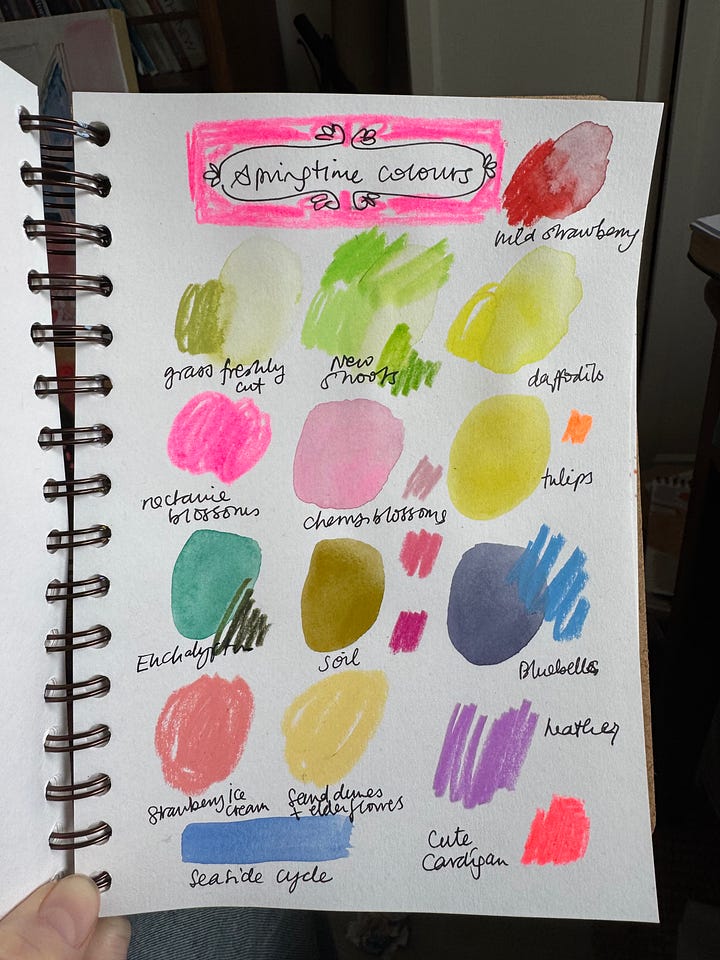 Springtime colours
wild strawberry
grass freshly
cut
New
shoots
daffodils
nectarine
blossoms
cherry blossoms
tulips
Euchalyptu
soil
Bluebells
strawberry ice
cream
Sand dunes
+ elderflowers
heather
Seaside cycle
Cute
Cardigan